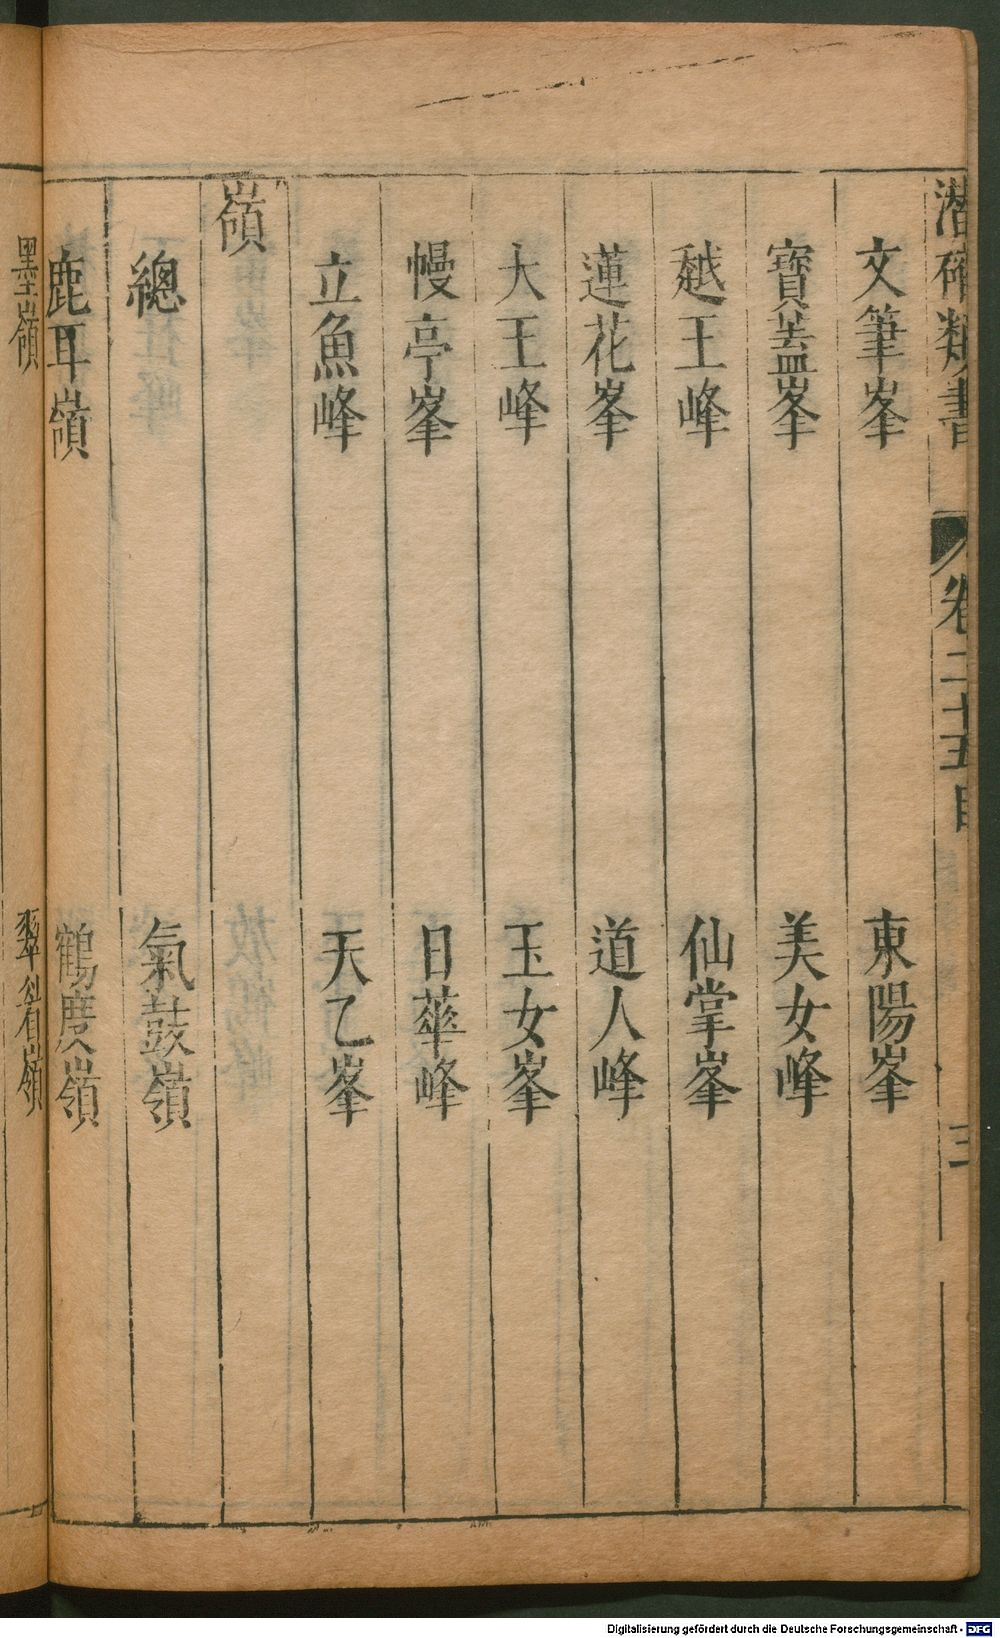 潜確類書 卷二十五目 三
文筆峯 東陽峯
寶蓋峯 美女峰
越王峰 仙掌峯
蓮花峯 道人峰
大王峰 玉女峯
幔亭峯 日華峰
立魚峰 天乙峯
嶺
總 氣鼓嶺
鹿耳嶺 鶴度嶺
墨嶺 翠嶺
Digitalisierung gefördert durch die Deutsche Forschungsgemeinschaft - DFG